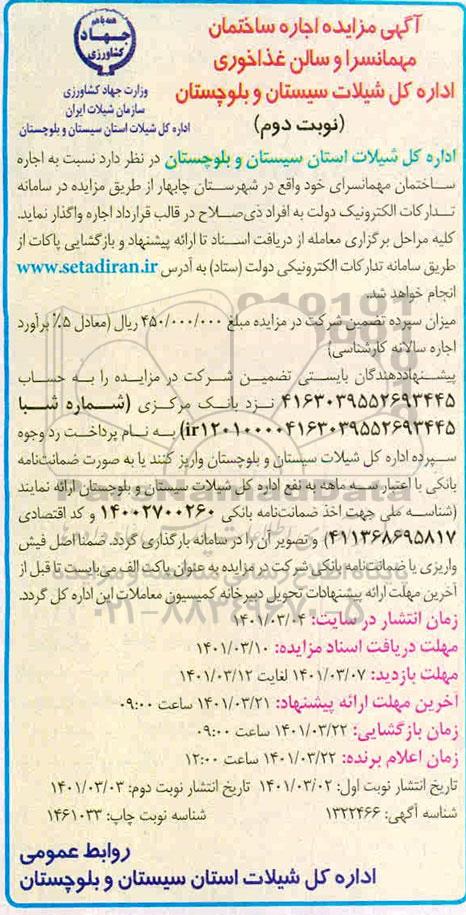 آگهی مزایده اجاره ساختمان
مهمانسرا و سالن غذاخوری
اداره کل شیلات سیستان و بلوچستان
(نوبت دوم)
همه با هم
جهاد
کشاورزی
وزارت جهاد کشاورزی
سازمان شیلات ایران
اداره کل شیلات استان سیستان و بلوچستان
اداره کل شیلات استان سیستان و بلوچستان در نظر دارد نسبت به اجاره
ساختمان مهمانسرای خود واقع در شهرستان چابهار از طریق مزایده در سامانه
تدارکات الکترونیک دولت به افراد ذی‌صلاح در قالب قرارداد اجاره واگذار نماید.
کلیه مراحل برگزاری معامله از دریافت اسناد تا ارائه پیشنهاد و بازگشایی پاکات از
طریق سامانه تدارکات الکترونیکی دولت (ستاد) به آدرس www.setadiran.ir
انجام خواهد شد.
میزان سپرده تضمین شرکت در مزایده مبلغ ۴۵۰/۰۰۰/۰۰۰ ریال (معادل ۵٪ برآورد
اجاره سالانه کارشناسی)
پیشنهاددهندگان بایستی تضمین شرکت در مزایده را به حساب
۴۱۶۳۰۳۹۵۵۲۶۹۳۴۴۵ نزد بانک مرکزی (شماره شبا
ir۱۲۰۱۰۰۰۰۴۱۶۳۰۳۹۵۵۲۶۹۳۴۴۵) به نام پرداخت رد وجوه
سپرده اداره کل شیلات سیستان و بلوچستان واریز کنند یا به صورت ضمانت‌نامه
بانکی با اعتبار سه ماهه به نفع اداره کل شیلات سیستان و بلوچستان ارائه نمایند
(شناسه ملی جهت اخذ ضمانت‌نامه بانکی ۱۴۰۰۲۷۰۰۲۶۰ و کد اقتصادی
۴۱۱۳۶۸۶۹۵۸۱۷) و تصویر آن را در سامانه بارگذاری گردد. ضمنا اصل فیش
واریزی یا ضمانت‌نامه بانکی شرکت در مزایده به عنوان پاکت الف می‌بایست تا قبل از
آخرین مهلت ارائه پیشنهادات تحویل دبیرخانه کمیسیون معاملات این اداره کل گردد.
زمان انتشار در سایت: ۱۴۰۱/۰۳/۰۴
مهلت دریافت اسناد مزایده: ۱۴۰۱/۰۳/۱۰
مهلت بازدید: ۱۴۰۱/۰۳/۰۷ لغایت ۱۴۰۱/۰۳/۱۲
آخرین مهلت ارائه پیشنهاد: ۱۴۰۱/۰۳/۲۱ ساعت ۰۹:۰۰
زمان بازگشایی: ۱۴۰۱/۰۳/۲۲ ساعت ۰۹:۰۰
زمان اعلام برنده: ۱۴۰۱/۰۳/۲۲ ساعت ۱۲:۰۰
تاریخ انتشار نوبت اول: ۱۴۰۱/۰۳/۰۲ تاریخ انتشار نوبت دوم: ۱۴۰۱/۰۳/۰۳
شناسه آگهی: ۱۳۲۲۴۶۶ شناسه نوبت چاپ: ۱۴۶۱۰۳۳
روابط عمومی
اداره کل شیلات استان سیستان و بلوچستان